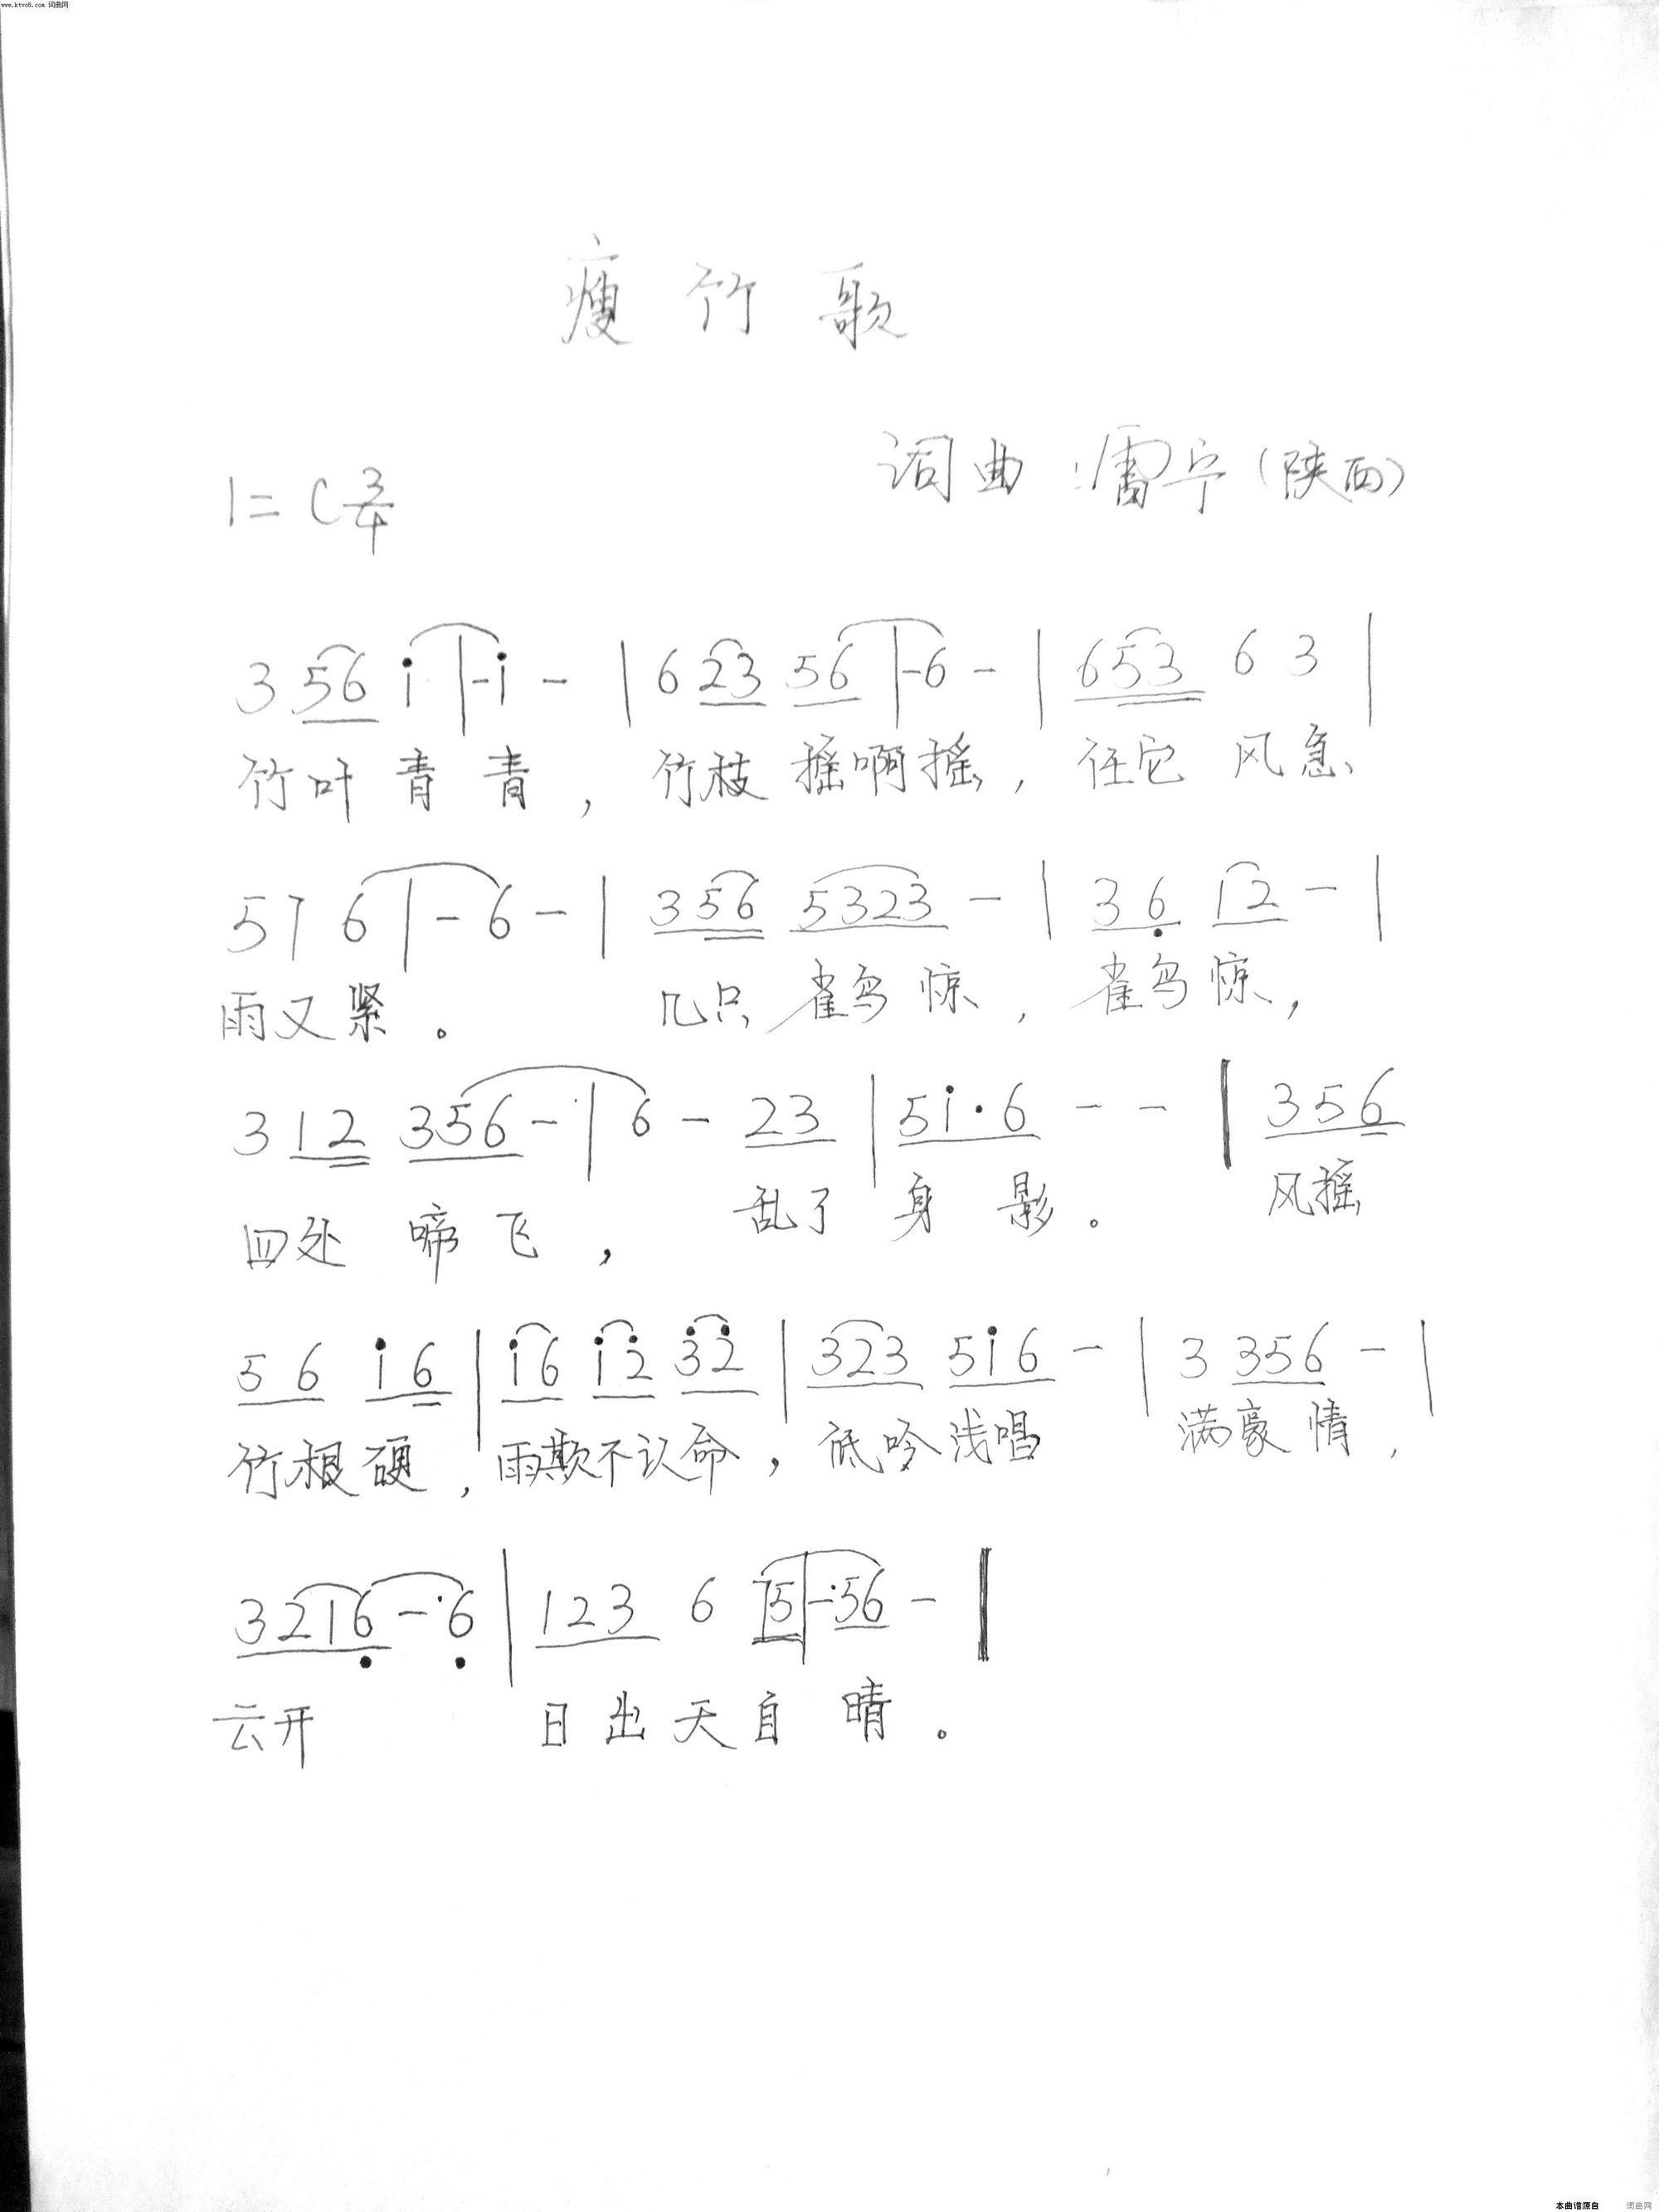 www.ktvc8.com 词曲网
瘦竹歌
词曲:雷宁(陕西)
1=C 3/4
3 56 i |-i - | 6 23 56 |-6 - | 653 6 3 |
竹叶青青,竹枝摇啊摇,任它风急
5 7 6 | - 6 - | 356 5323 - | 36 12 - |
雨又紧。几只雀鸟惊,雀鸟惊,
3 12 356 - | 6 - 23 | 5i·6 - - | 356
四处啼飞,乱了身影。风摇
56 i6 | i6 i2 32 | 323 5i6 - | 3 356 - |
竹根硬,雨欺不认命,低吟浅唱满豪情,
3216 - 6 | 123 6 75 | - 56 - |
云开日出天自晴。
本曲谱源自 词曲网